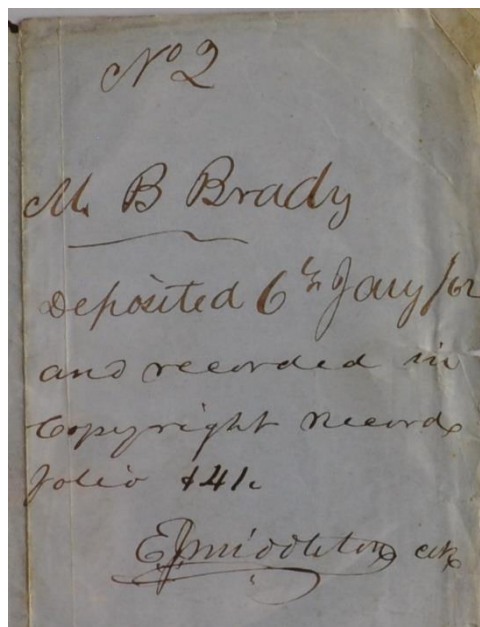 No 2
M. B Brady
Deposited 6th Jany /62
and recorded in
Copyright Records
folio 141.
EJ Middleton clk